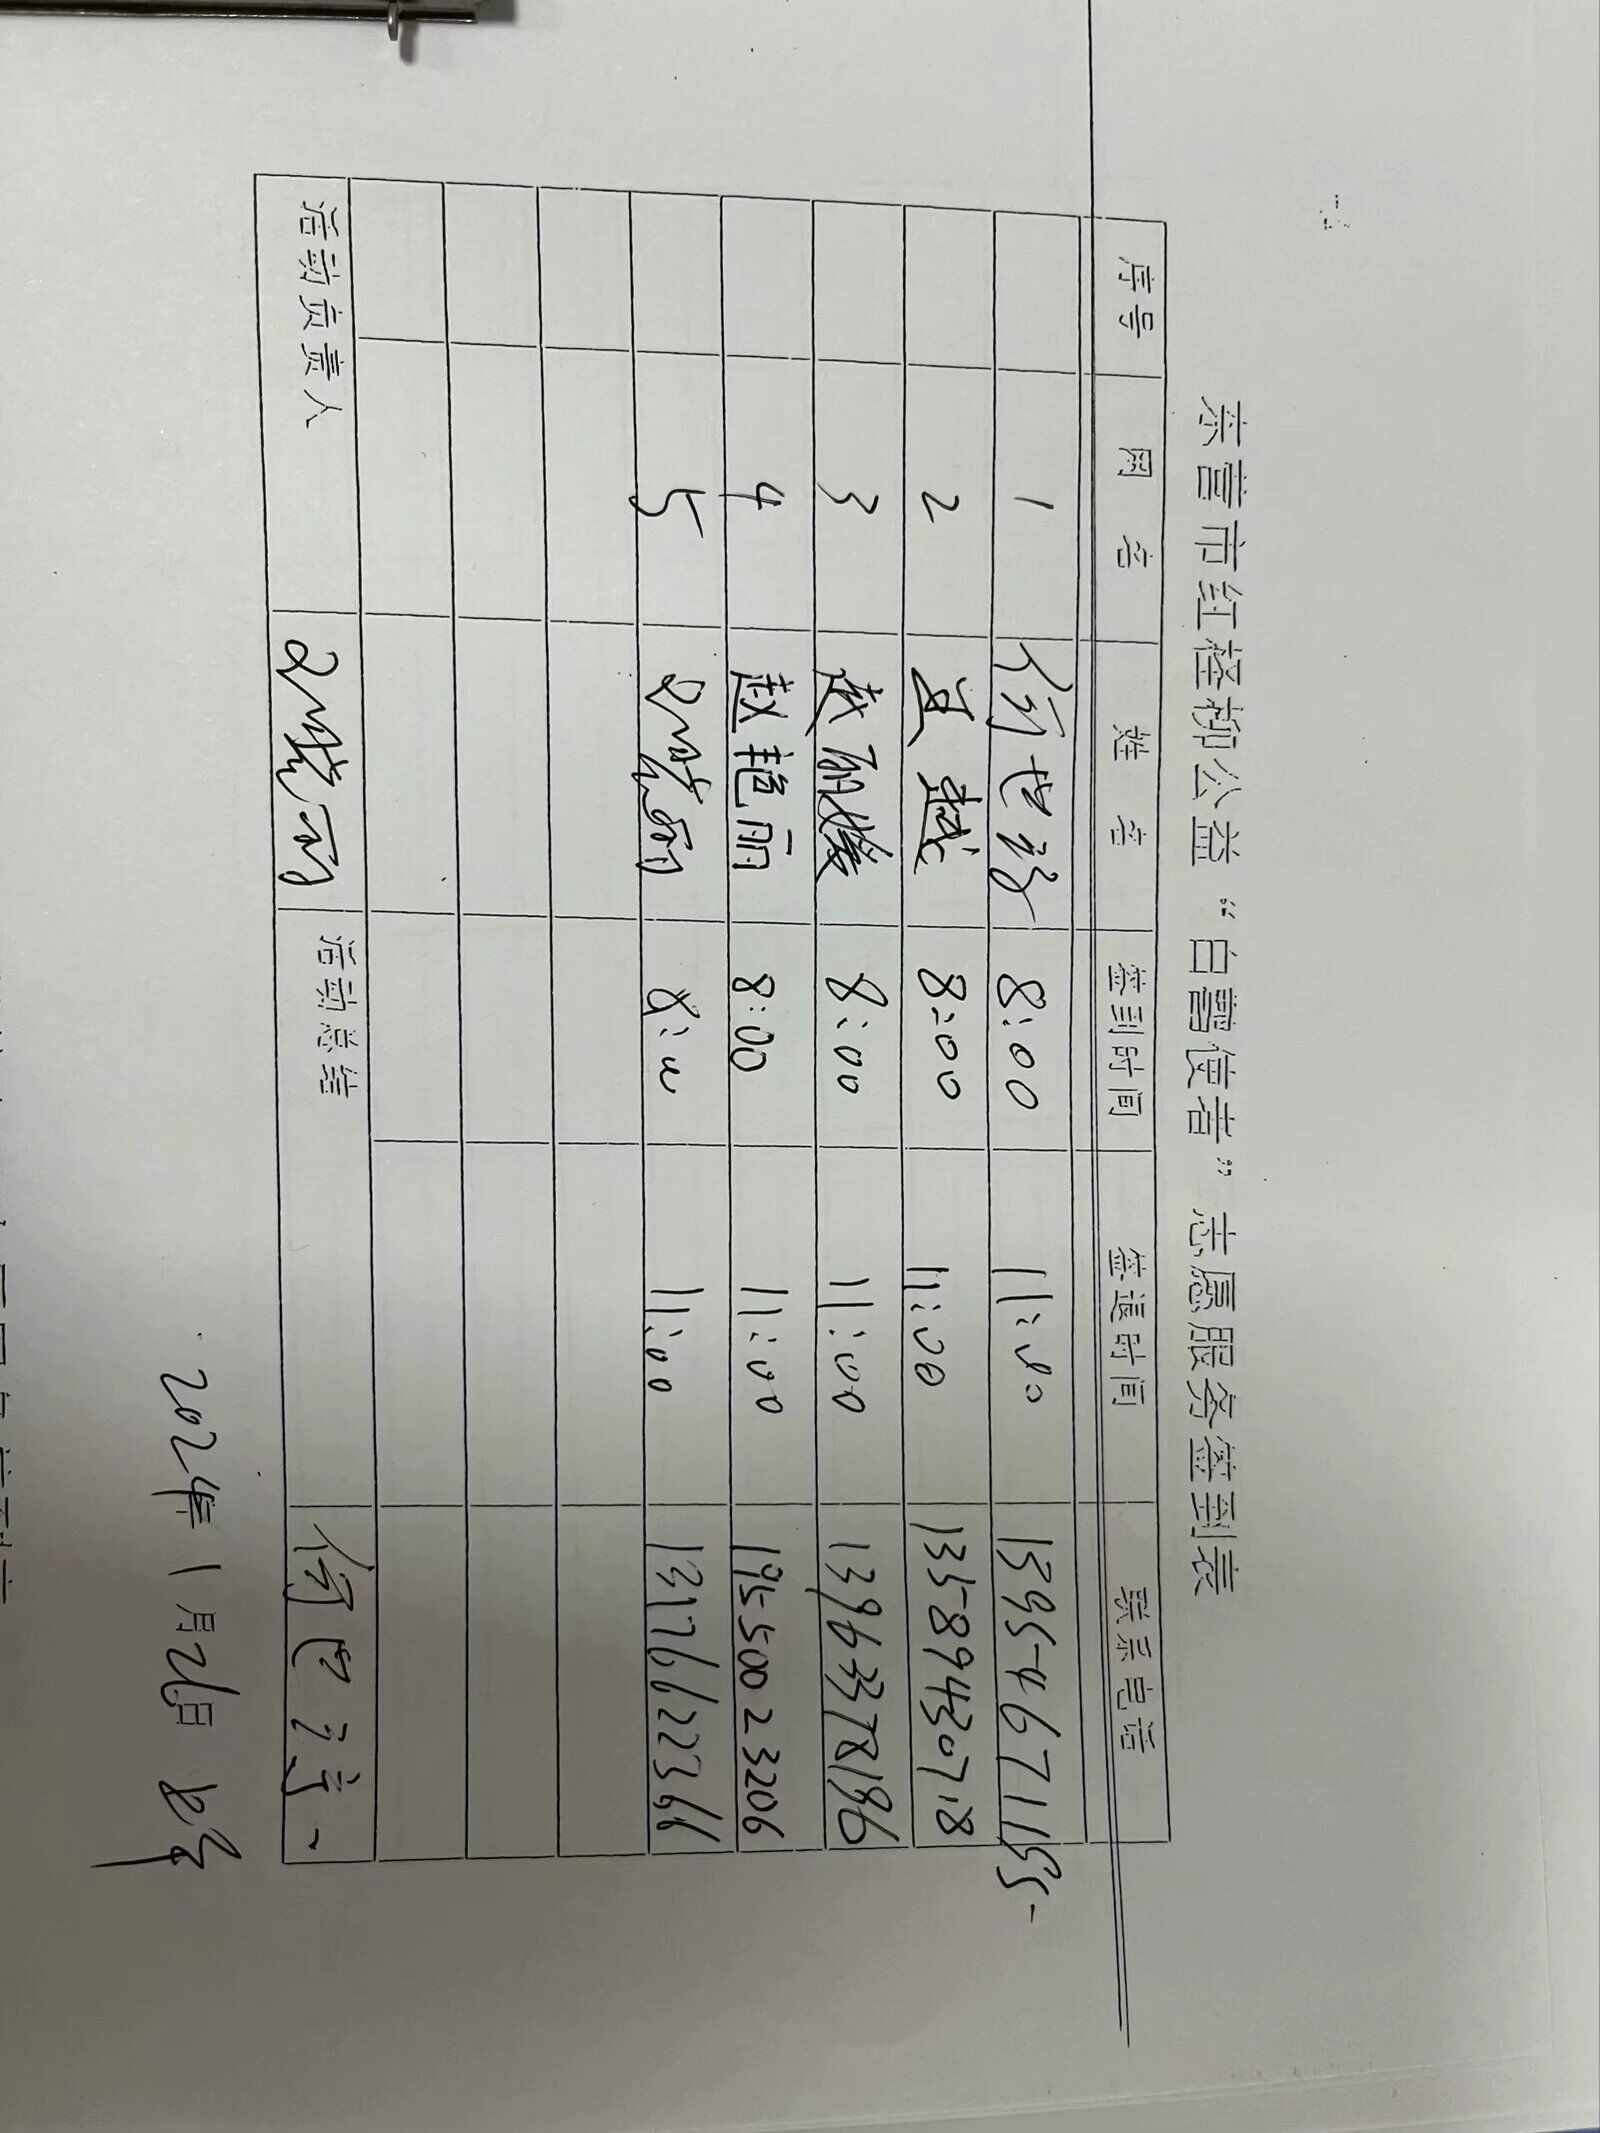 东营市红柽柳公益“白鹭使者”志愿服务签到表
序号 网名 姓名 签到时间 签退时间 联系电话
1 8:00 11:00 13954671155
2 越 8:00 11:00 13589430718
3 赵丽媛 8:00 11:00 13963378186
4 赵艳丽 8:00 11:00 19550023206
5 8:00 11:00 13176622366
活动负责人 活动总结
2024年1月26日